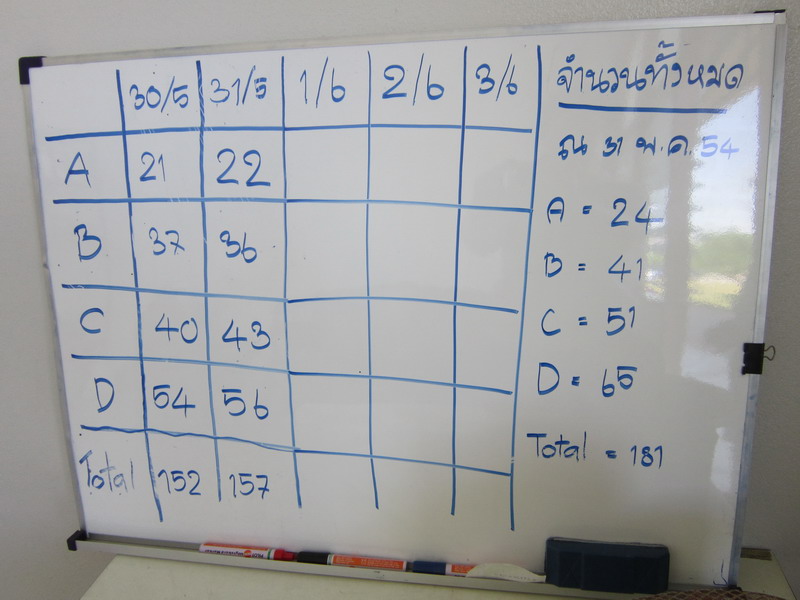 30/5 31/5 1/6 2/6 3/6
A 21 22
B 37 36
C 40 43
D 54 56
Total 152 157
จำนวนทั้งหมด
ณ 31 พ.ค. 54
A = 24
B = 41
C = 51
D = 65
Total = 181